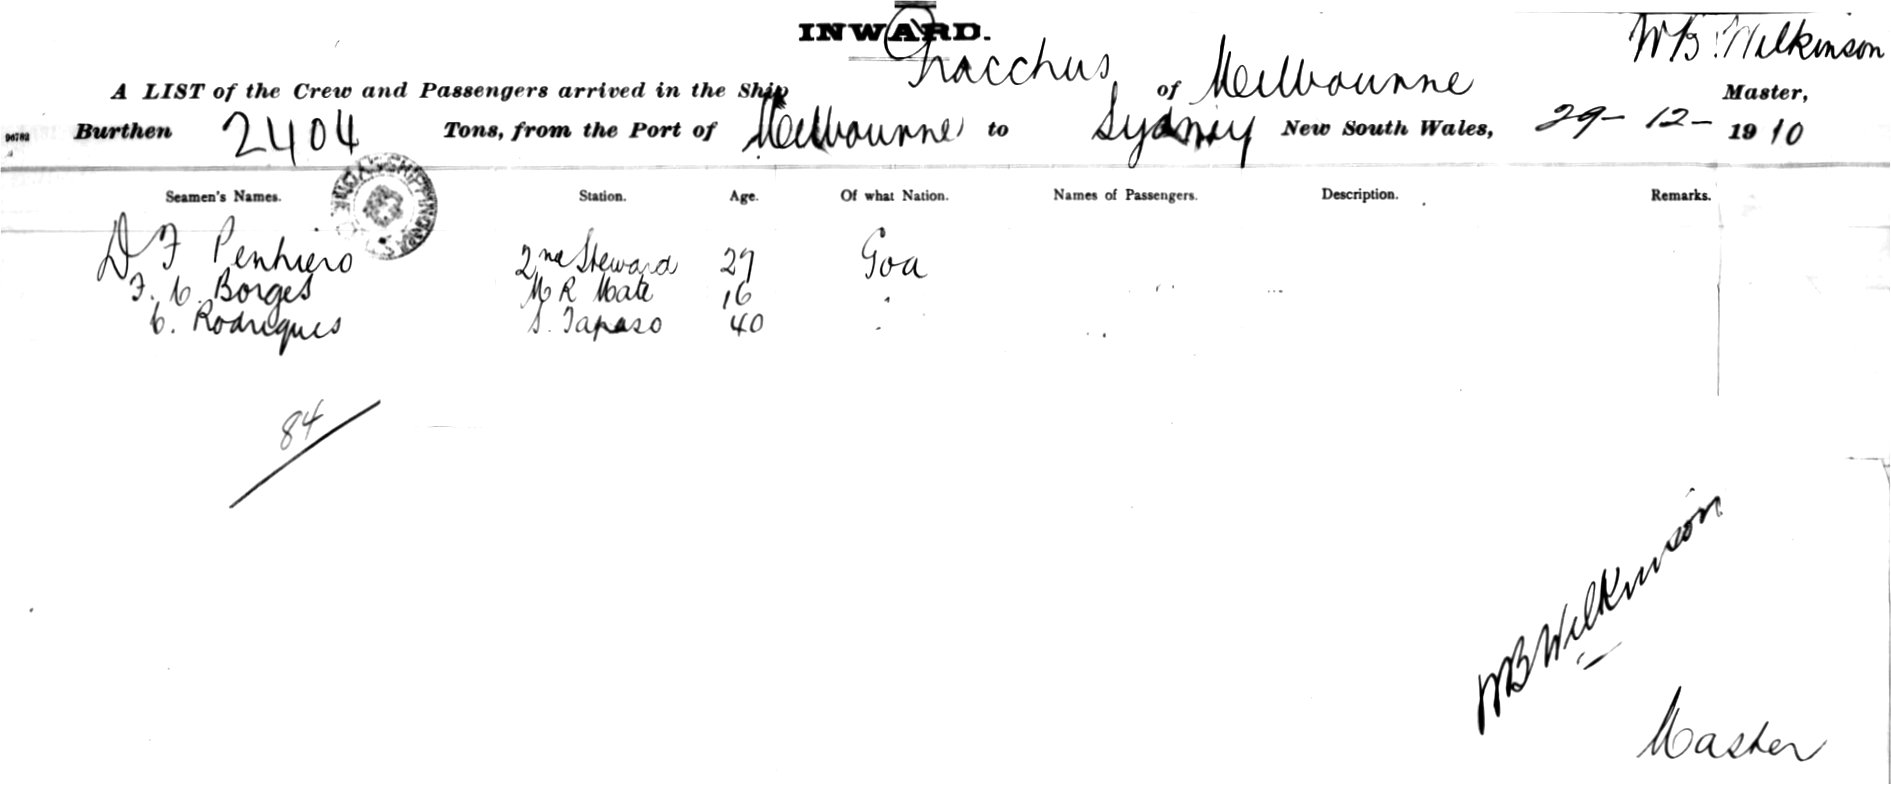 INWARD.
W B Wilkinson
A LIST of the Crew and Passengers arrived in the Ship Gracchus of Melbourne Master,
Burthen 2404 Tons, from the Port of Melbourne to Sydney New South Wales, 29-12-1910
Seamen's Names. Station. Age. Of what Nation. Names of Passengers. Description. Remarks.
D F Penhiero 2nd Steward 27 Goa
F. C. Borges M R Mate 16 "
C. Rodrigues S. Tapaso 40 "
84
W B Wilkinson
Master